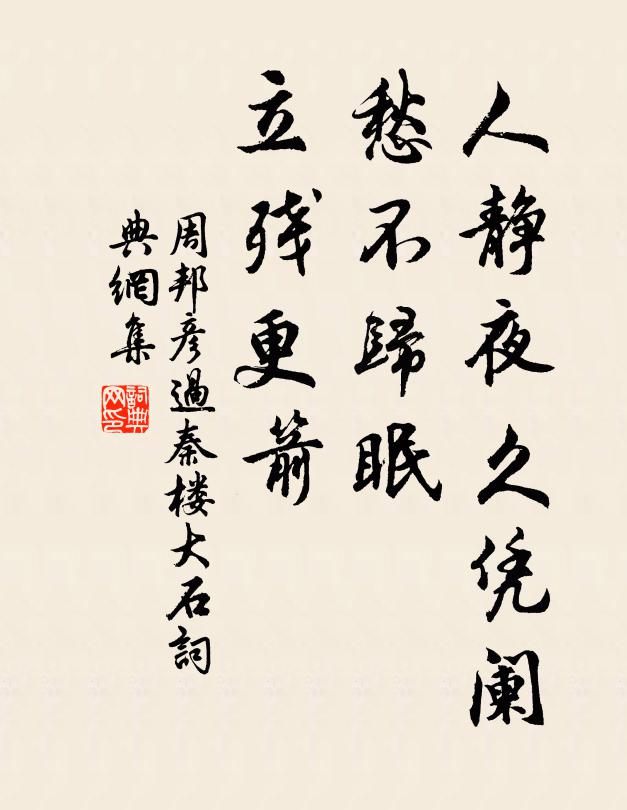 人静夜久凭阑
愁不歸眠
立残更箭
周邦彦過秦楼大石詞
典網集
詞典
网印